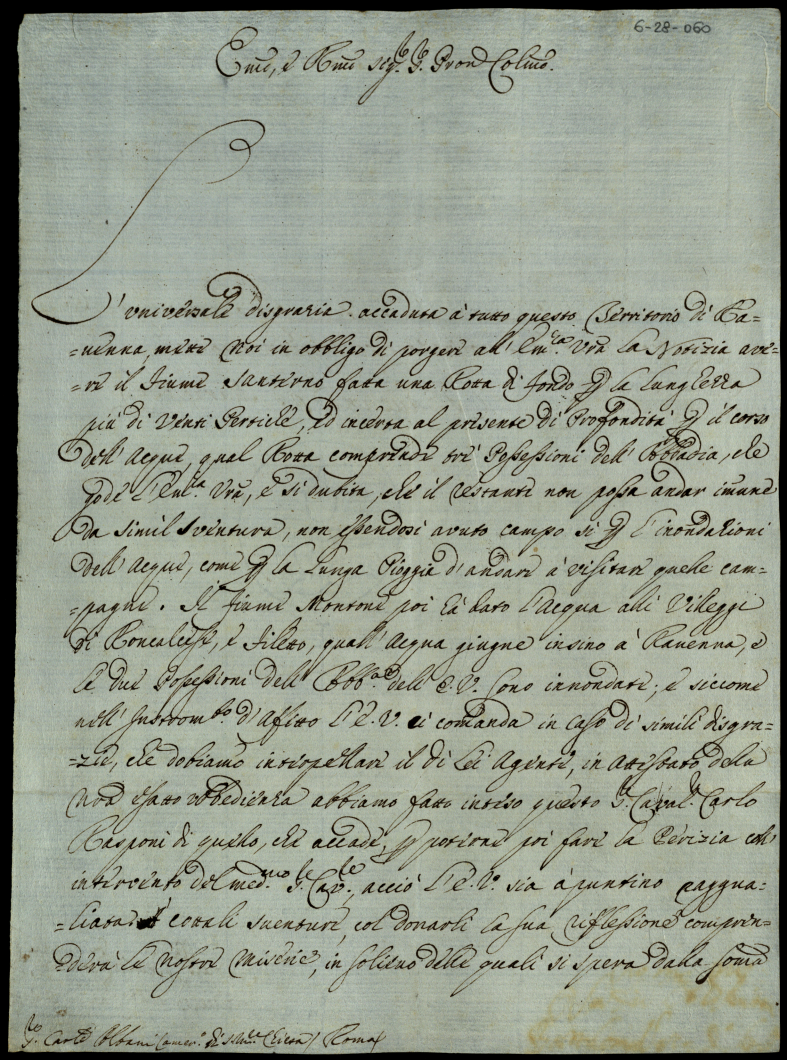 6-28-060
Em̃o, e Rm̃o Sig.re S. Pron Colmo
L'universale disgrazia accaduta à tutto questo Territorio di Ra=
=uenna, mette Noi in obbligo di porgere all' Em.za Vrã la Notizia ave=
=re il Fiume Santerno fatta una Rotta di fondo ꝑ la lunghezza
più di Venti Pertiche, ed incerta al presente di Profondità ꝑ il corso
dell' Acque, qual Rotta comprende trè Possessioni dell' Abbadia, che
gode l'Em.za Vrã, e si dubita, che il restante non possa andar imune
da simil sventura, non essendosi avuto campo si ꝑ l'inondazioni
dell' Acque, come ꝑ la lunga Pioggia d'andare à visitare quelle cam=
=pagne. Il fiume Montone poi hà dato l'Acqua alli Villaggi
di Roncalcese, e Filetto, quall' Acqua giugne insino à Rauenna, e
le due Possessioni dell' Abb.a dell' E.V. sono innondate; e siccome
nell' Instrom.to d'Afitto l'E.V. ci comanda in caso di simili disgra=
=zie, che dobiamo interpellare il di Lei Agente, in Attestato della
Nrã esatta obbedienza abbiamo fatto inteso questo S.r Caval.r Carlo
Rasponi di quello, che accade, ꝑ potere poi fare la Perizia coll'
intervento del med.mo S.r Cav.re, acciò l'E.V. sia àpuntino raggua=
=liata cotali suenture, col donarli la sua riflessione compren=
=derà le nostre miserie, in solieuo delle quali si spera dalla somã
S.r Carle Albani Roma